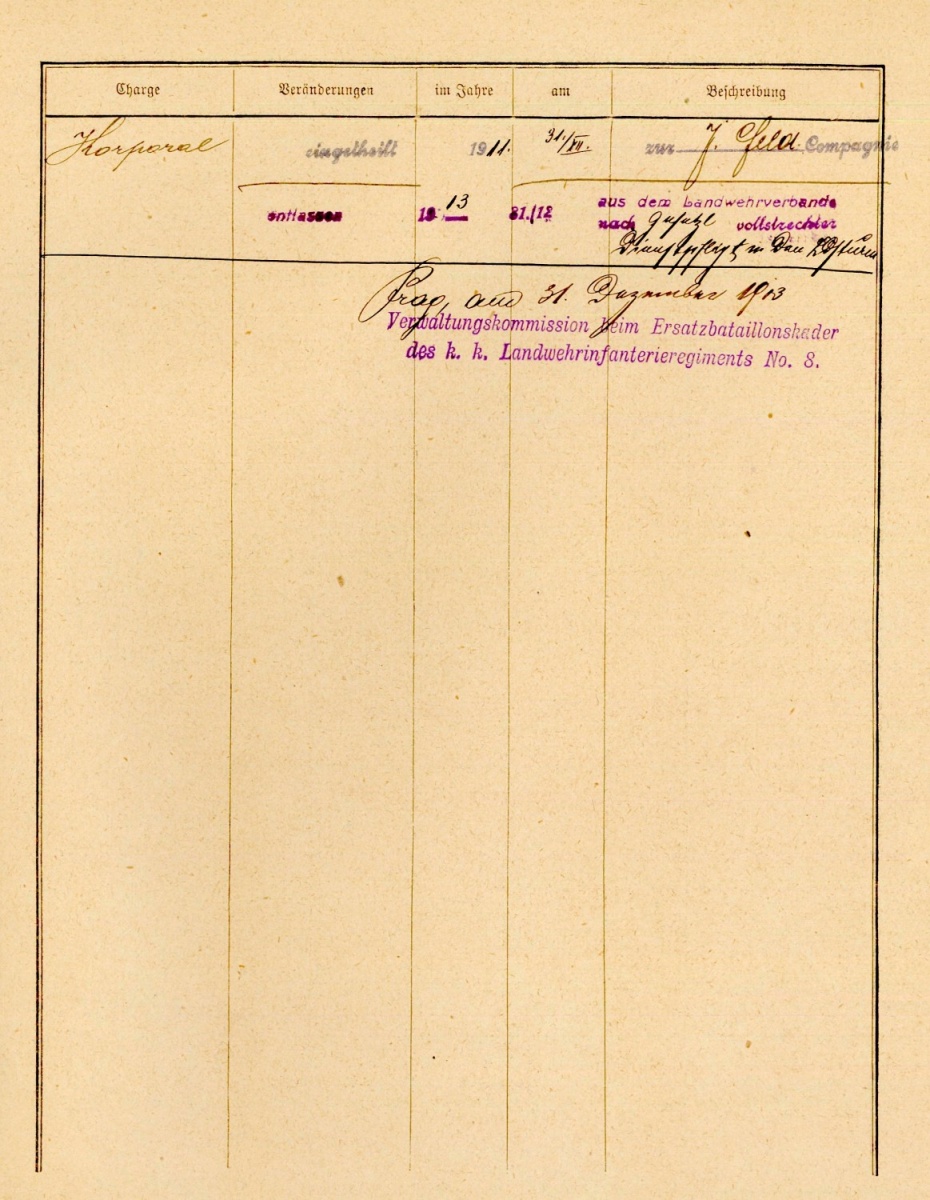 Charge Veränderungen im Jahre am Beschreibung
Korporal eingetheilt 1911. 31./XII. zur Feld Compagnie
entlassen 1913 31./12 aus dem Landwehrverbande
nach vollstreckter
Dienstpflicht in den
Prag, am 31. Dezember 1913
Verwaltungskommission beim Ersatzbataillonskader
des k. k. Landwehrinfanterieregiments No. 8.